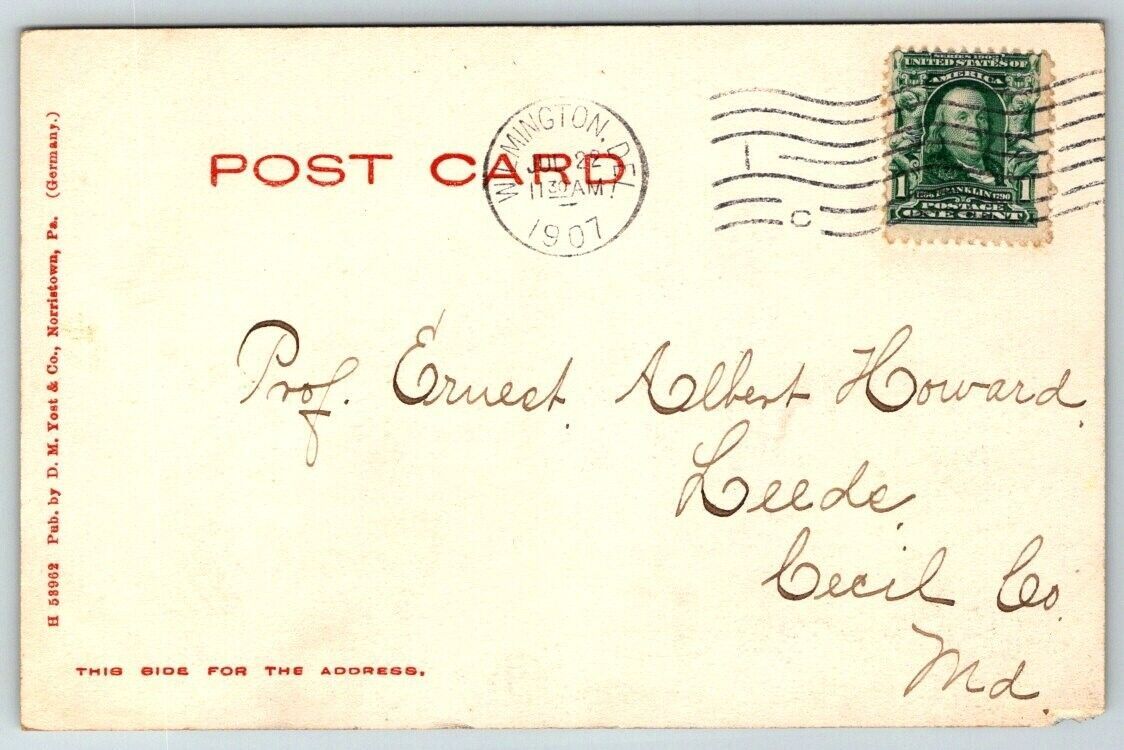 SERIES 1902
UNITED STATES OF
AMERICA
1 FRANKLIN 1
POSTAGE
ONE CENT
WILMINGTON, DEL.
JUL 22
11 30 AM
1907
1
C
POST CARD
H 53962 Pub. by D. M. Yost & Co., Norristown, Pa. (Germany.)
Prof. Ernest Albert Howard
Leeds
Cecil Co.
Md.
THIS SIDE FOR THE ADDRESS.